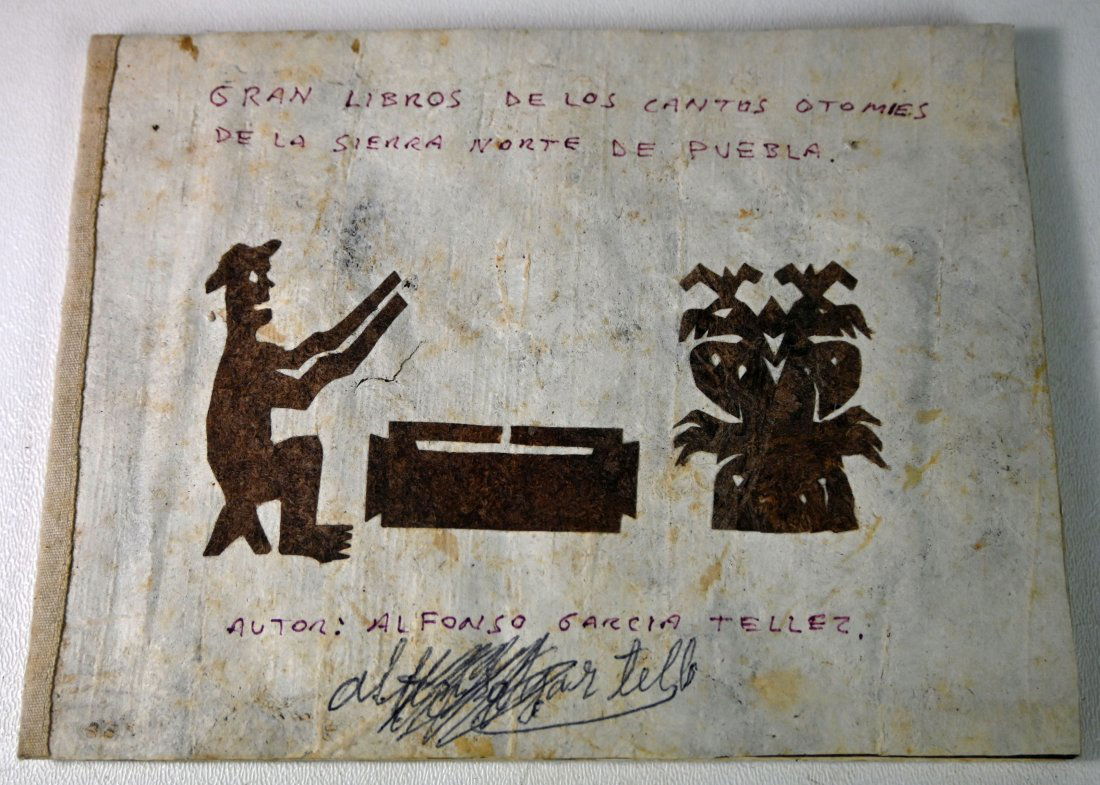 GRAN LIBROS DE LOS CANTOS OTOMIES
DE LA SIERRA NORTE DE PUEBLA.
AUTOR: ALFONSO GARCIA TELLEZ.